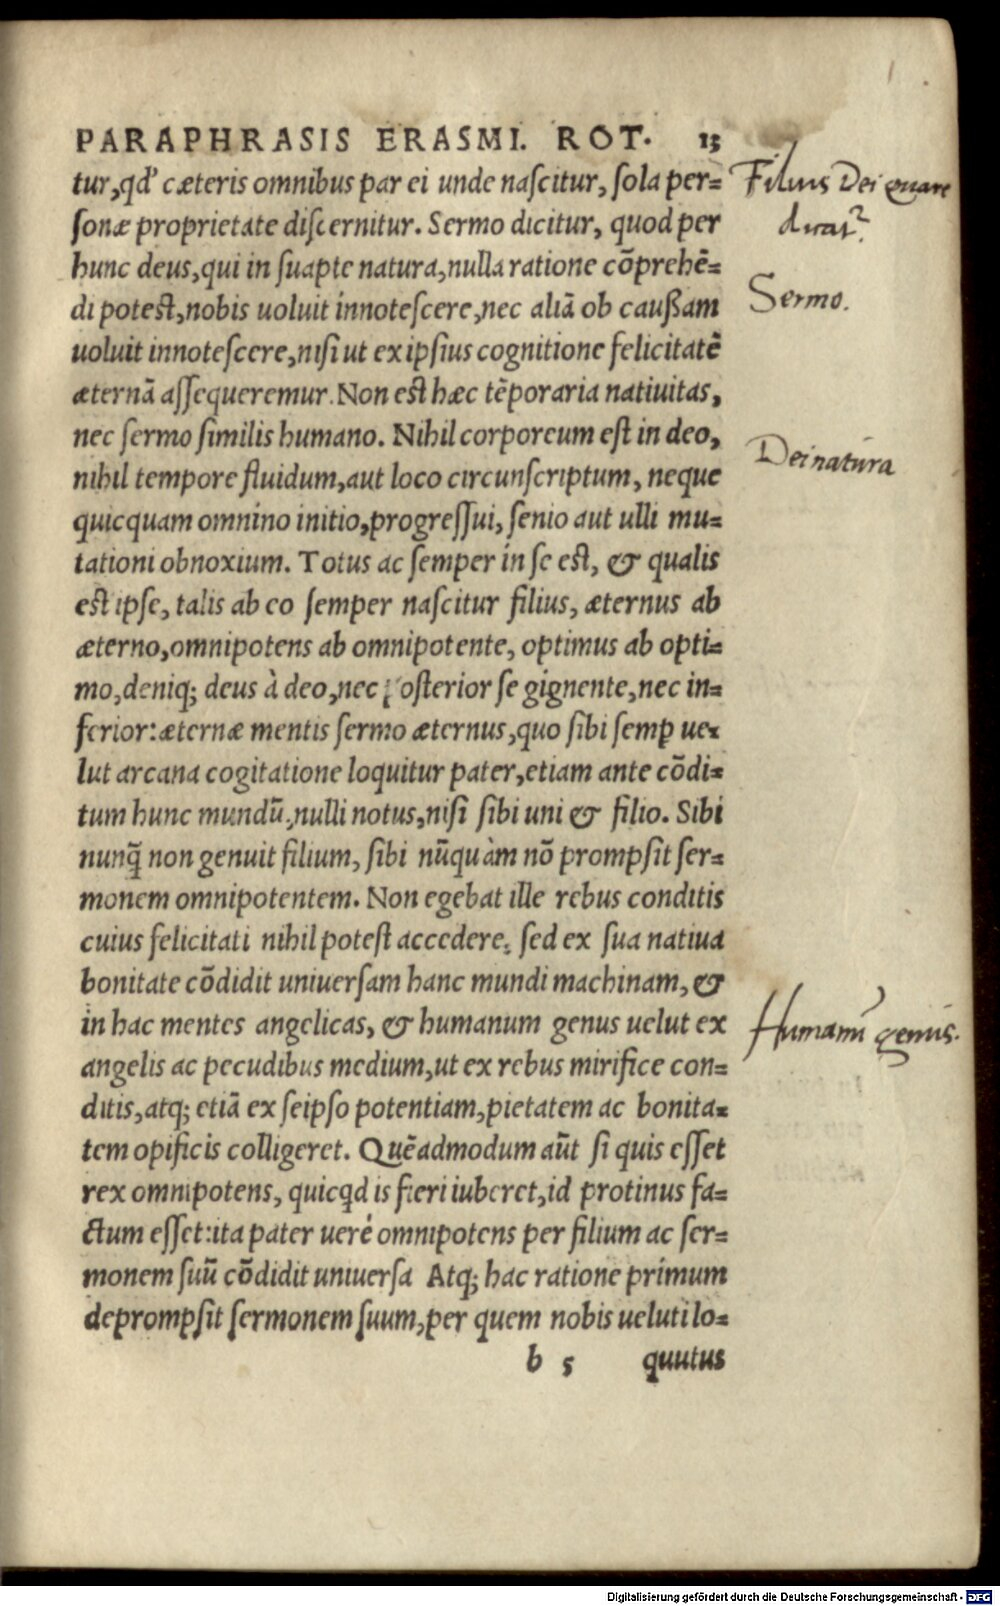 PARAPHRASIS ERASMI. ROT. 13
tur,qđ cæteris omnibus par ei unde naſcitur, ſola per=
ſonæ proprietate diſcernitur. Sermo dicitur, quod per
hunc deus,qui in ſuapte natura,nulla ratione cōprehē=
di poteſt,nobis uoluit innoteſcere,nec aliā ob cauſſam
uoluit innoteſcere,niſi ut ex ipſius cognitione felicitatē
æternā aſſequeremur. Non eſt hæc tēporaria natiuitas,
nec ſermo ſimilis humano. Nihil corporeum eſt in deo,
nihil tempore fluidum,aut loco circunſcriptum, neque
quicquam omnino initio,progreſſui, ſenio aut ulli mu=
tationi obnoxium. Totus ac ſemper in ſe eſt, & qualis
eſt ipſe, talis ab eo ſemper naſcitur filius, æternus ab
æterno,omnipotens ab omnipotente, optimus ab opti=
mo,deniq; deus à deo,nec poſterior ſe gignente,nec in=
ferior:æternæ mentis ſermo æternus,quo ſibi ſemꝑ ue=
lut arcana cogitatione loquitur pater,etiam ante cōdi=
tum hunc mundū,nulli notus,niſi ſibi uni & filio. Sibi
nunq̄ non genuit filium, ſibi nūquàm nō prompſit ſer=
monem omnipotentem. Non egebat ille rebus conditis
cuius felicitati nihil poteſt accedere, ſed ex ſua natiua
bonitate cōdidit uniuerſam hanc mundi machinam, &
in hac mentes angelicas, & humanum genus uelut ex
angelis ac pecudibus medium,ut ex rebus mirifice con=
ditis,atq; etiā ex ſeipſo potentiam,pietatem ac bonita=
tem opificis colligeret. Quēadmodum aūt ſi quis eſſet
rex omnipotens, quicqd is fieri iuberet,id protinus fa=
ctum eſſet:ita pater uerè omnipotens per filium ac ſer=
monem ſuū cōdidit uniuerſa Atq; hac ratione primum
deprompſit ſermonem ſuum,per quem nobis ueluti lo=
b 5 quutus
Filius Dei quare
dicat᷑.
Sermo.
Dei natura
Humanū genus.
Digitalisierung gefördert durch die Deutsche Forschungsgemeinschaft - DFG